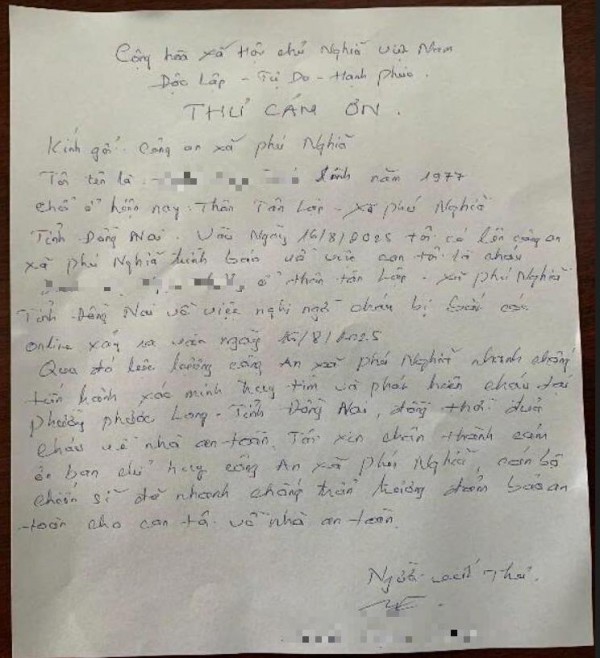 Cộng hòa xã Hội chủ Nghĩa việt Nam
Độc Lập - Tự Do - Hạnh phúc.
THƯ CÁM ƠN.
Kính gởi: Công an xã phú Nghĩa
Tôi tên là Sinh năm 1977
chổ ở hiện nay. Thôn Tân Lập - xã phú Nghĩa
Tỉnh Đồng Nai. Vào Ngày 16/8/2025 tôi có lên công an
xã phú Nghĩa trình báo về việc con tôi là cháu
ở thôn tân Lập - xã phú Nghĩa
Tỉnh Đồng Nai về việc nghi ngờ cháu bị bắt cóc
online xảy ra vào ngày 16/8/2025
Qua đó lực lượng công An xã phú Nghĩa nhanh chóng
tiến hành xác minh truy tìm và phát hiện cháu tại
phường phước Long - Tỉnh Đồng Nai, đồng thời đưa
cháu về nhà an-toàn. Tôi xin chân thành cám
ơn ban chỉ huy công An xã phú Nghĩa, cán bộ
chiến sĩ đã nhanh chóng khẩn trương đảm bảo an
-toàn cho con tôi về nhà an-toàn.
Người viết Thư.